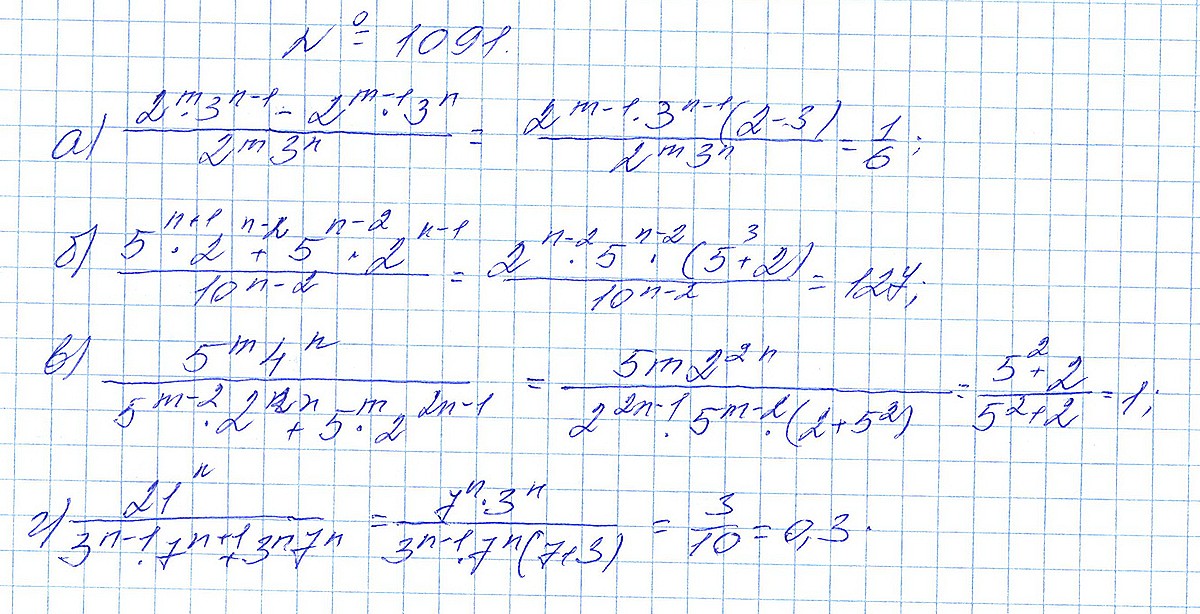 № 1091.
а) (2^m·3^(n-1) - 2^(m-1)·3^n)/(2^m 3^n) = (2^(m-1)·3^(n-1)(2-3))/(2^m 3^n) = 1/6;
б) (5^(n+1)·2^(n-2) + 5^(n-2)·2^(n-1))/(10^(n-2)) = (2^(n-2)·5^(n-2)·(5^3+2))/(10^(n-2)) = 127;
в) (5^m 4^n)/(5^(m-2)·2^(2n) + 5^m·2^(2n-1)) = (5^m 2^(2n))/(2^(2n-1)·5^(m-2)·(2+5^2)) = (5^2+2)/(5^2+2) = 1;
г) (21^n)/(3^(n-1)·7^(n+1) + 3^n 7^n) = (7^n·3^n)/(3^(n-1)·7^n(7+3)) = 3/10 = 0,3.